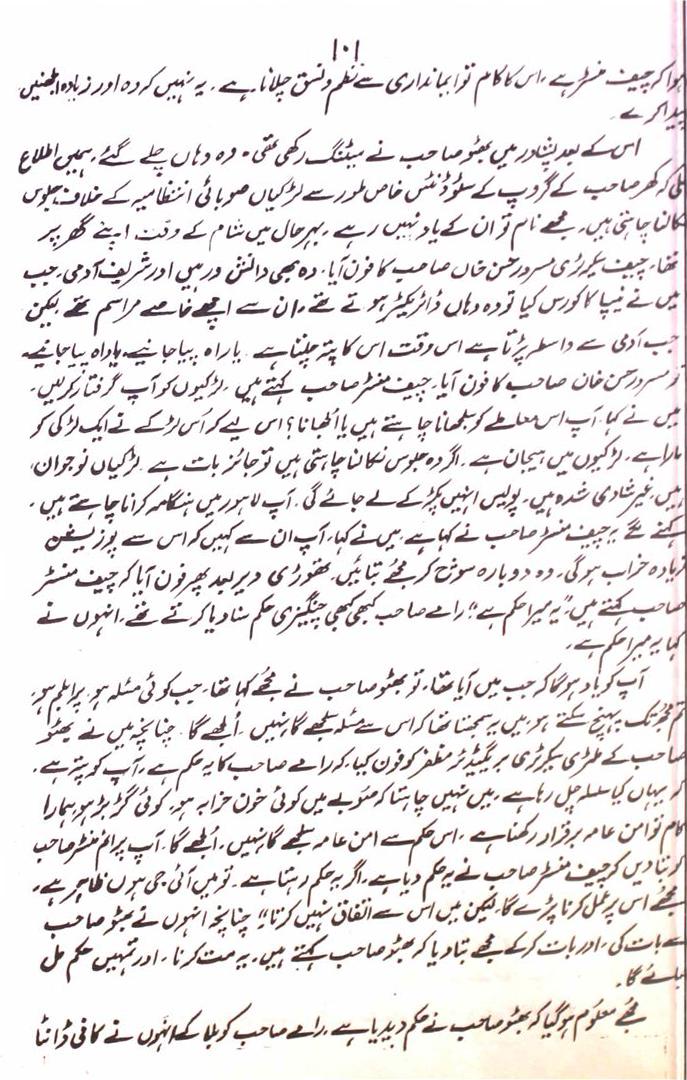 ۱۰۱
ہوا کہ چیف منسٹر ہے، اس کا کام تو ایمانداری سے نظم و نسق چلانا ہے۔ یہ نہیں کہ وہ اور زیادہ الجھنیں
پیدا کرے۔
اس کے بعد پشاور میں بھٹو صاحب نے میٹنگ رکھی تھی۔ وہ وہاں چلے گئے، ہمیں اطلاع
ملی کہ کھر صاحب کے گروپ کے سٹوڈنٹس خاص طور سے لڑکیاں صوبائی انتظامیہ کے خلاف جلوس
نکالنا چاہتی ہیں۔ مجھے نام تو ان کے یاد نہیں رہے، بہرحال میں شام کے وقت اپنے گھر پر
تھا۔ چیف سیکرٹری مسرور حسن خاں صاحب کا فون آیا۔ وہ بھی دانش ور ہیں اور شریف آدمی۔ جب
میں نے نیپا کا کورس کیا تو وہ وہاں ڈائریکٹر ہوتے تھے، ان سے اچھے خاصے مراسم تھے لیکن
جب آدمی سے واسطہ پڑتا ہے اس وقت اس کا پتہ چلتا ہے۔ یا راہ پیا جانیے، یا واہ پیا جانیے۔
تو مسرور حسن خان صاحب کا فون آیا۔ چیف منسٹر صاحب کہتے ہیں۔ لڑکیوں کو آپ گرفتار کر لیں۔
میں نے کہا، آپ اس معاملے کو سلجھانا چاہتے ہیں یا الجھانا؟ اس لیے کہ اس لڑکے نے ایک لڑکی کو
مارا ہے۔ لڑکیوں میں ہیجان ہے۔ اگر وہ جلوس نکالنا چاہتی ہیں تو جائز بات ہے۔ لڑکیاں نوجوان،
ہیں، غیر شادی شدہ ہیں۔ پولیس انہیں پکڑ کے لے جائے گی۔ آپ لاہور میں ہنگامہ کرانا چاہتے ہیں۔
کہنے لگے یہ چیف منسٹر صاحب نے کہا ہے، میں نے کہا، آپ ان سے کہیں کہ اس سے پوزیشن
زیادہ خراب ہو گی۔ وہ دوبارہ سوچ کر مجھے بتائیں۔ تھوڑی دیر بعد پھر فون آیا کہ چیف منسٹر
صاحب کہتے ہیں "یہ میرا حکم ہے" رامے صاحب کبھی کبھی چنگیزی حکم سنا دیا کرتے تھے، انہوں نے
کہا یہ میرا حکم ہے۔
آپ کو یاد ہو گا کہ جب میں آیا تھا، تو بھٹو صاحب نے مجھے کہا تھا، جب کوئی مسئلہ ہو، پرابلم ہو،
تم مجھ تک پہنچ سکتے ہو، میں یہ سمجھتا تھا کہ اس سے مسئلہ سلجھے گا نہیں، اُلجھے گا۔ چنانچہ میں نے بھٹو
صاحب کے ملٹری سیکرٹری بریگیڈئر مظفر کو فون کیا، کہ رامے صاحب کا یہ حکم ہے، آپ کو پتہ ہے۔
کہ یہاں کیا سلسلہ چل رہا ہے۔ میں نہیں چاہتا کہ صوبے میں کوئی خون خرابہ ہو، کوئی گڑبڑ ہو، ہمارا
کام تو امن عامہ برقرار رکھنا ہے، اس حکم سے امن عامہ سلجھے گا نہیں، اُلجھے گا۔ آپ پرائم منسٹر صاحب
کو بتا دیں کہ چیف منسٹر صاحب نے یہ حکم دیا ہے، اگر یہ حکم رہتا ہے۔ تو میں آئی جی ہوں ظاہر ہے،
مجھے اس پر عمل کرنا پڑے گا، لیکن میں اس سے اتفاق نہیں کرتا" چنانچہ انہوں نے بھٹو صاحب
سے بات کی، اور بات کر کے مجھے بتا دیا کہ بھٹو صاحب کہتے ہیں، یہ مت کرنا، اور تمہیں حکم مل
جائے گا۔
مجھے معلوم ہو گیا کہ بھٹو صاحب نے حکم دیدیا ہے، رامے صاحب کو بلا کے انہوں نے کافی ڈانٹا